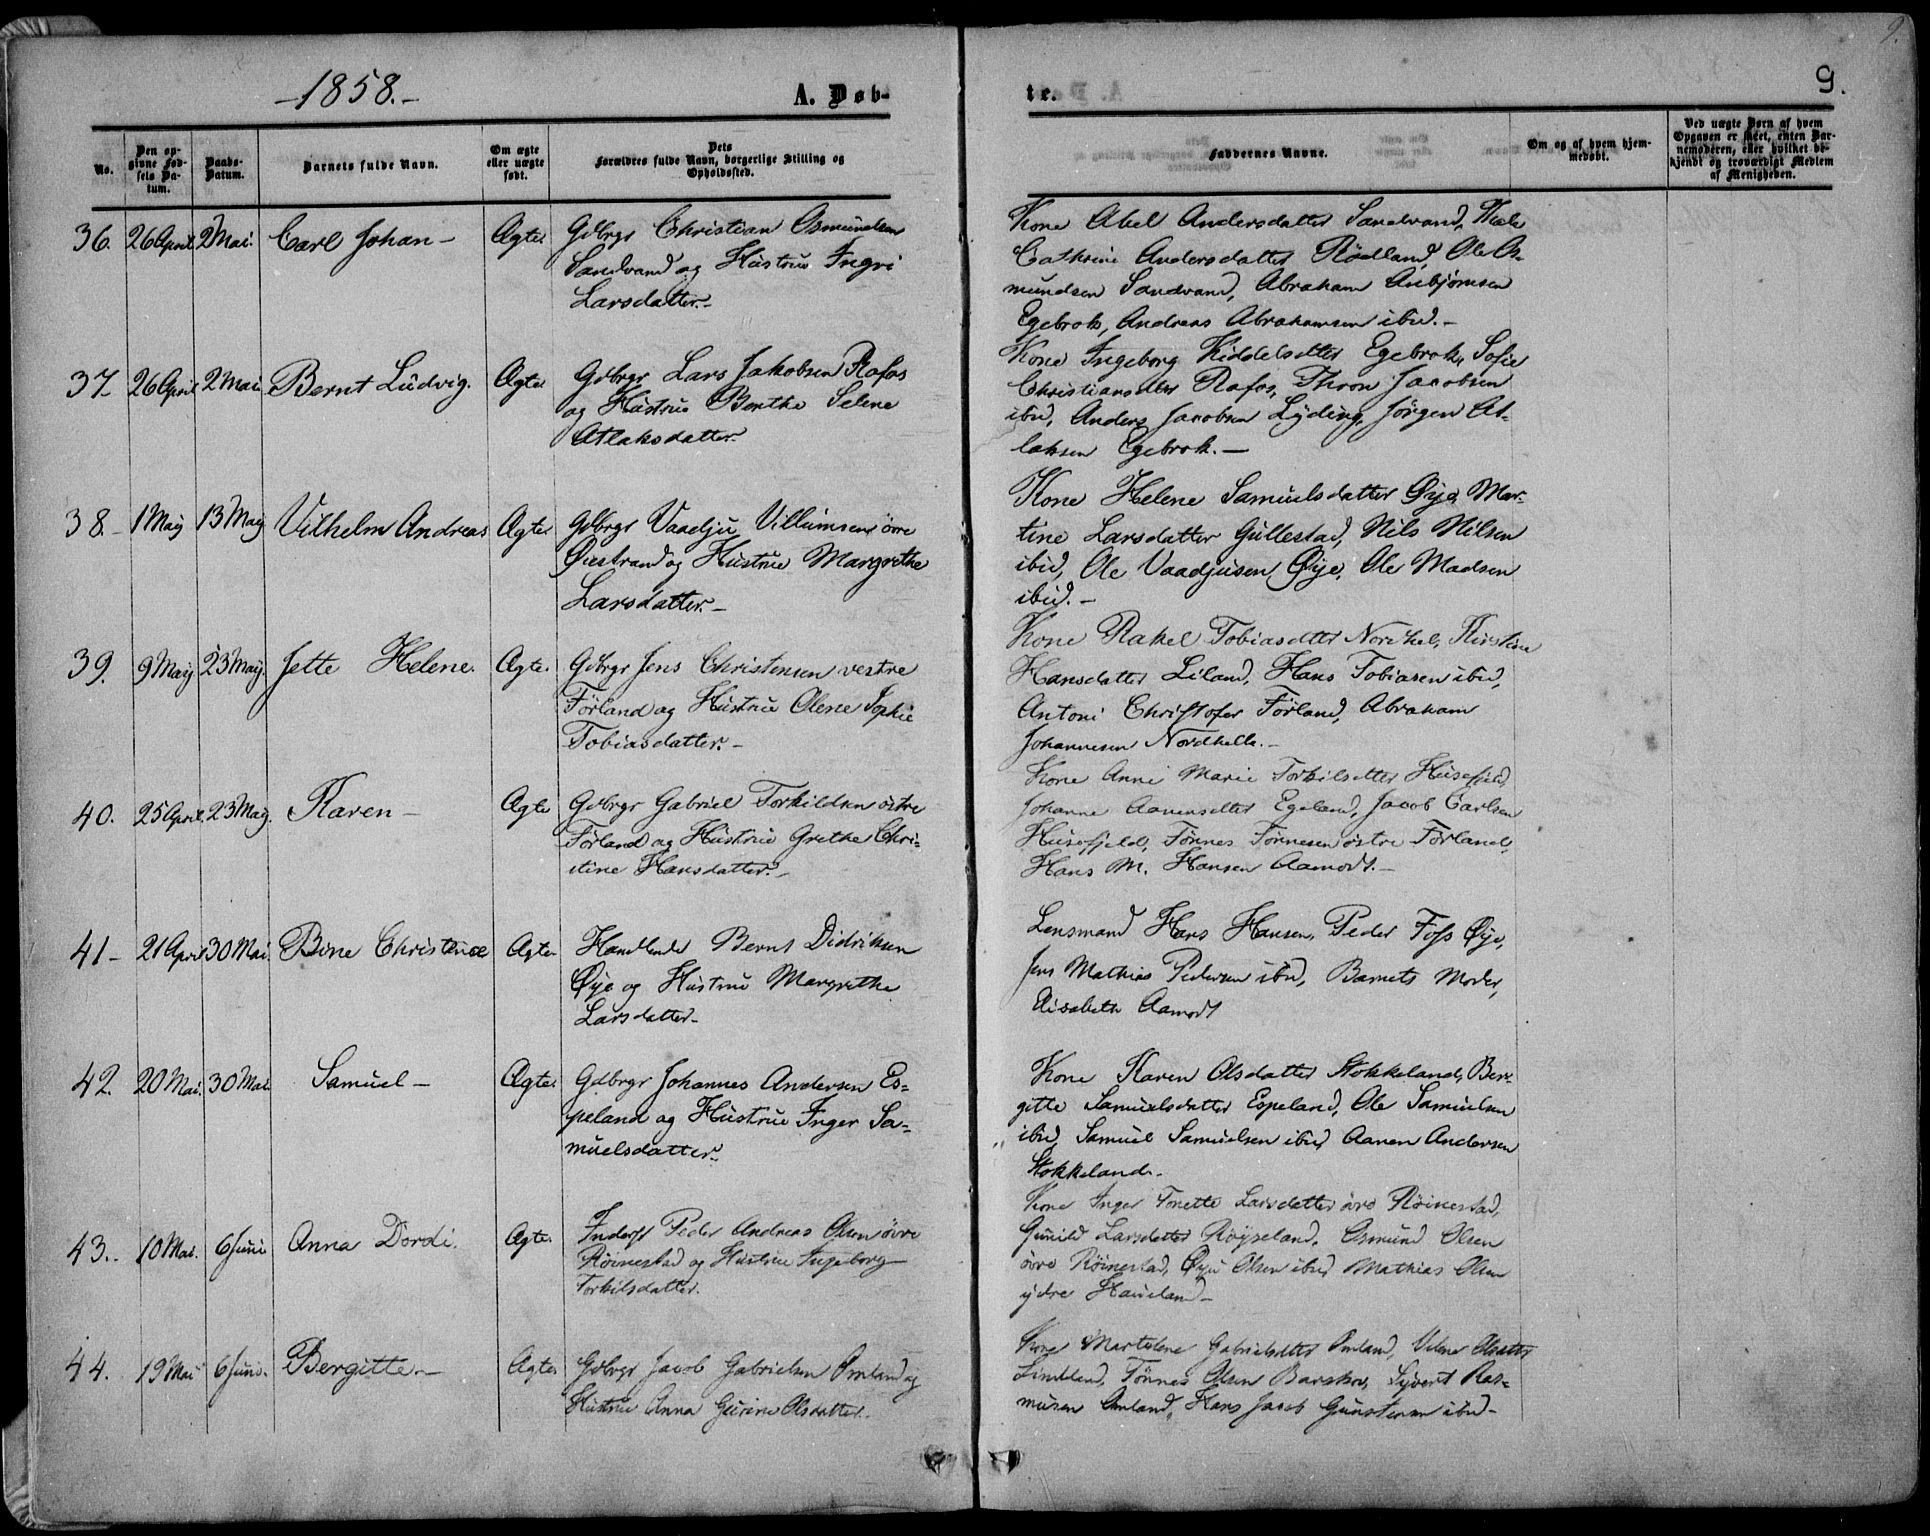 9.
9.
-1858.-
A. Døb-
te.
No.
Den op-
givne Fød-
sels Da-
tum.
Daabs-
Datum.
Barnets fulde Navn.
Om ægte
eller uægte
født.
Dets
Forældres fulde Navn, borgerlige Stilling og
Opholdssted.
Faddernes Navne.
Om og af hvem hjem-
medøbt.
Ved uægte Børn af hvem
Opgaven er skeet, enten Bar-
nemoderen, eller hvilket be-
kjendt og troværdigt Medlem
af Menigheden.
36. 26 April. 2 Mai. Carl Johan - Ægte. Gdbrgr Christian Osmundsen
Sandvand og Hustrue Ingri
Larsdatter.-
Kone Abel Andersdatter Sandvand,
Cathrine Andersdatter Rødland, Ole Os-
mundsen Sandvand, Abraham Anbjørnsen
Egebrok, Andreas Abrahamsen ibid.-
37. 26 April 2 Mai Bernt Ludvig. Ægte. Gdbrgr Lars Jakobsen Rafos
og Hustrue Berthe Selene
Atlaksdatter.
Kone Ingeborg Kiddelsdtter Egebrok, Sofie
Christiansdtr Rafos, Thron Jacobsen
ibid, Anders Jacobsen Lyding, Jørgen At-
laksen Egebrok.-
38.- 1 May 13 May Vilhelm Andreas Ægte. Gdbrgr Vaadju Villumsen övre
Øiestrand og Hustrue Margrethe
Larsdatter.-
Kone Helene Samuelsdatter Øye, Mar-
tine Larsdatter Gullestad, Nils Nilsen
ibid, Ole Vaadjusen Øye, Ole Madsen
ibid.-
39. 9 May 23 May. Jette Helene. Ægte. Gdbrgr Jens Christensen vestre
Førland og Hustrue Olene Sophie
Tobiasdatter.-
Kone Rakel Tobiasdtter Nordhel, Kirstine
Hansdatter Liland, Hans Tobiasen ibid,
Antoni Christofer Førland, Abraham
Johannesen Nordhelle.-
40. 25 April. 23 May. Karen - Ægte Gdbrgr Gabriel Torkildsen østre
Førland og Hustrue Grethe Chri-
stine Hansdatter.-
Kone Anne Marie Torkilsdtter Husefjeld,
Johanne Aanensdtter Egeland, Jacob Carlsen
Husefjeld, Tønnes Tønnesen østre Førland,
Hans M. Hansen Aamodt.-
41- 21 April 30 Mai. Bine Christine Ægte. Handlende Bernt Didriksen
Øye og Hustrue Margrethe
Larsdatter-
Lensmand Hans Hansen, Peder Foss Øye,
Jens Mathias Pedersen ibid, Barnets Moder,
Elisabeth Aamodt
42. 20 Mai. 30 Mai. Samuel - Ægte. Gdbrgr Johannes Andersen Es-
peland og Hustrue Inger Sa-
muelsdatter.-
Kone Karen Olsdatter Stokkeland, Ber-
gitte Samuelsdatter Espeland, Ole Samuelsen
ibid, Samuel Samuelsen ibid, Aanen Andersen
Stokkeland.-
43.. 10 Mai. 6 Juni Anna Dordi. Ægte. Inderst Peder Andreas Olsen övre
Røinestad og Hustrue Ingeborg
Torkilsdatter.
Kone Inger Tonette Larsdatter övre Røinestad,
Gunild Larsdatter Røyseland, Osmund Olsen
övre Røinestad, Olsen ibid, Mathias Olsen
ydre Haueland-
44. 19 Mai 6 Juni. Bergitte.- Ægte. Gdbrgr Jacob Gabrielsen Omland og
Hustrue Anna Gurine Olsdatter.
Kone Martelene Gabrielsdtter Omland, Olsdatter
Tønnes Olsen Sijvert Ras-
musen Omland, Hans Jacob Gunstensen ibid-